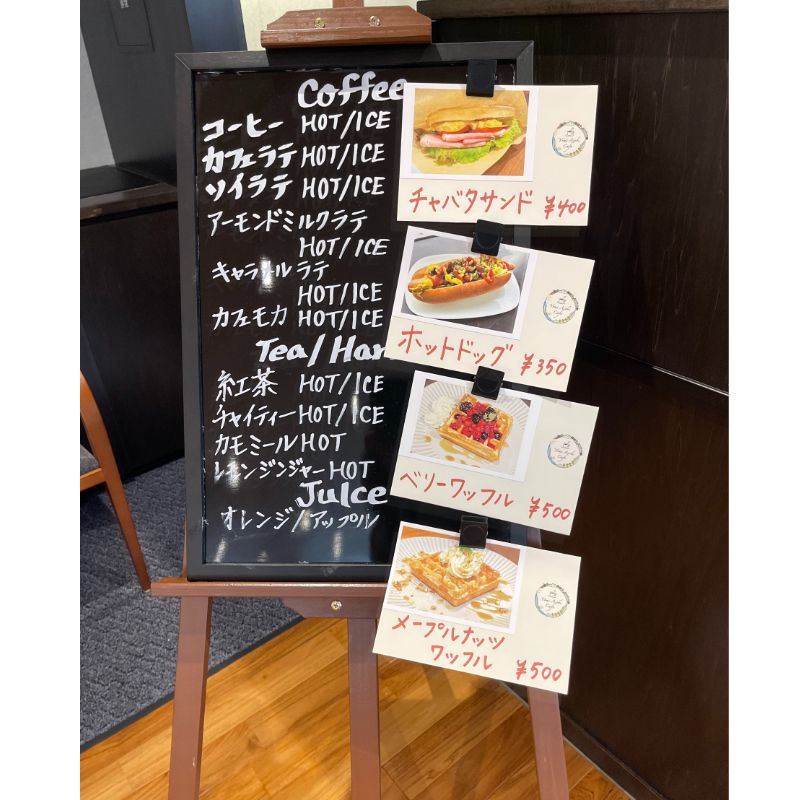 Coffee
コーヒー HOT/ICE
カフェラテ HOT/ICE
ソイラテ HOT/ICE
アーモンドミルクラテ
HOT/ICE
キャラメルラテ
HOT/ICE
カフェモカ HOT/ICE
Tea/Har
紅茶 HOT/ICE
チャイティー HOT/ICE
カモミール HOT
レモンジンジャー HOT
Juice
オレンジ/アップル
チャバタサンド ¥400
ホットドッグ ¥350
ベリーワッフル ¥500
メープルナッツ
ワッフル ¥500